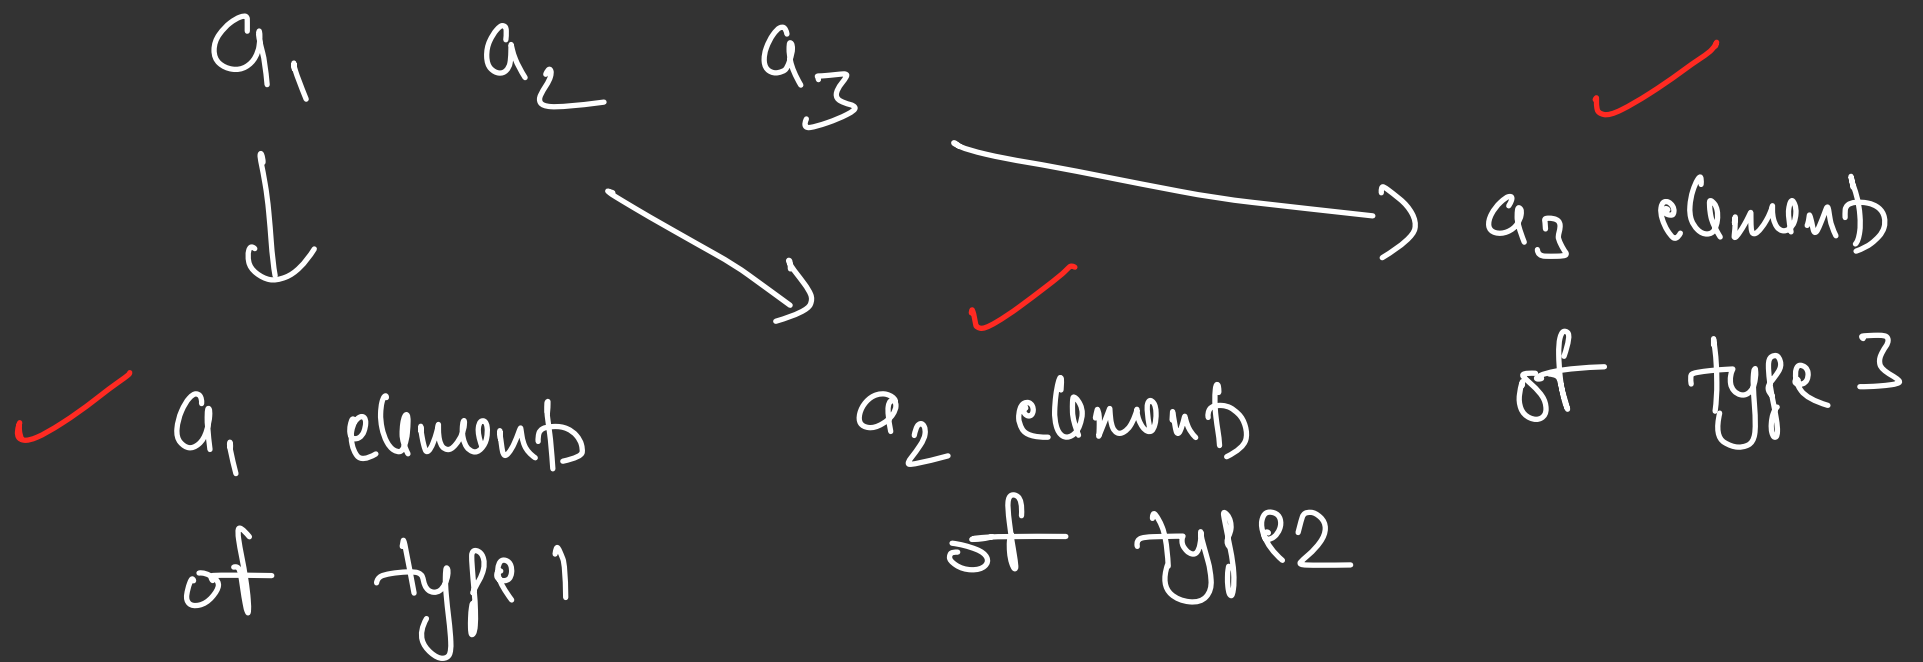 a₁ a₂ a₃
a₁ element
of type 1
a₂ element
of type 2
a₃ element
of type 3